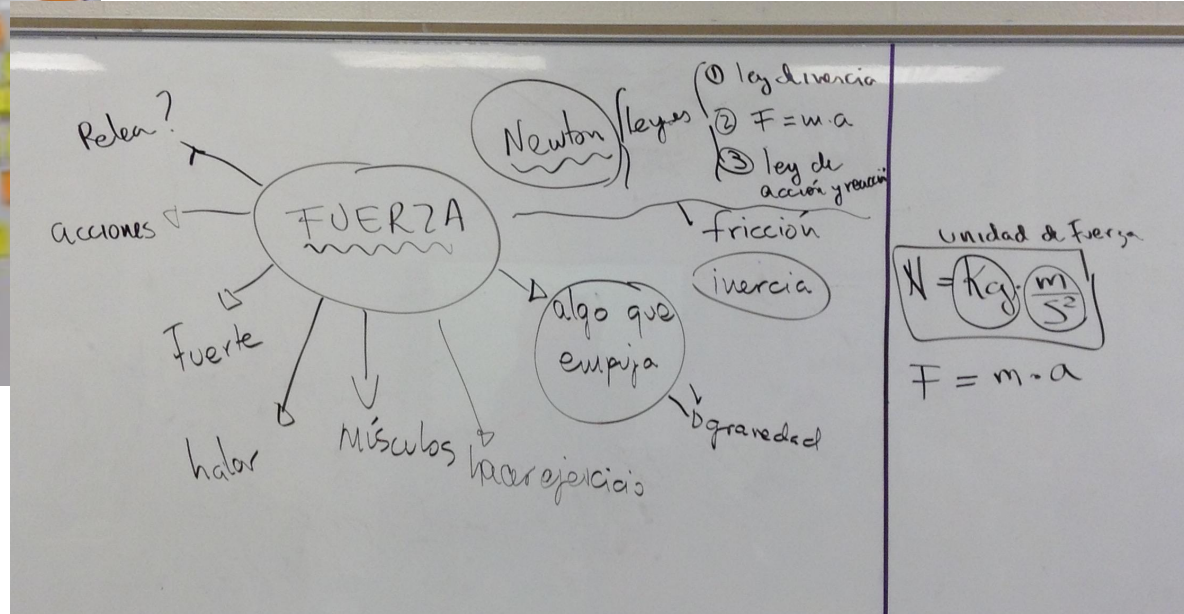 Pelea?
acciones
Fuerte
halar
Músculos
hacer ejercicio
FUERZA
algo que
empuja
gravedad
Newton
leyes
① ley de inercia
② F = m·a
③ ley de
acción y reacción
fricción
inercia
unidad de Fuerza
N = Kg · m/s²
F = m·a